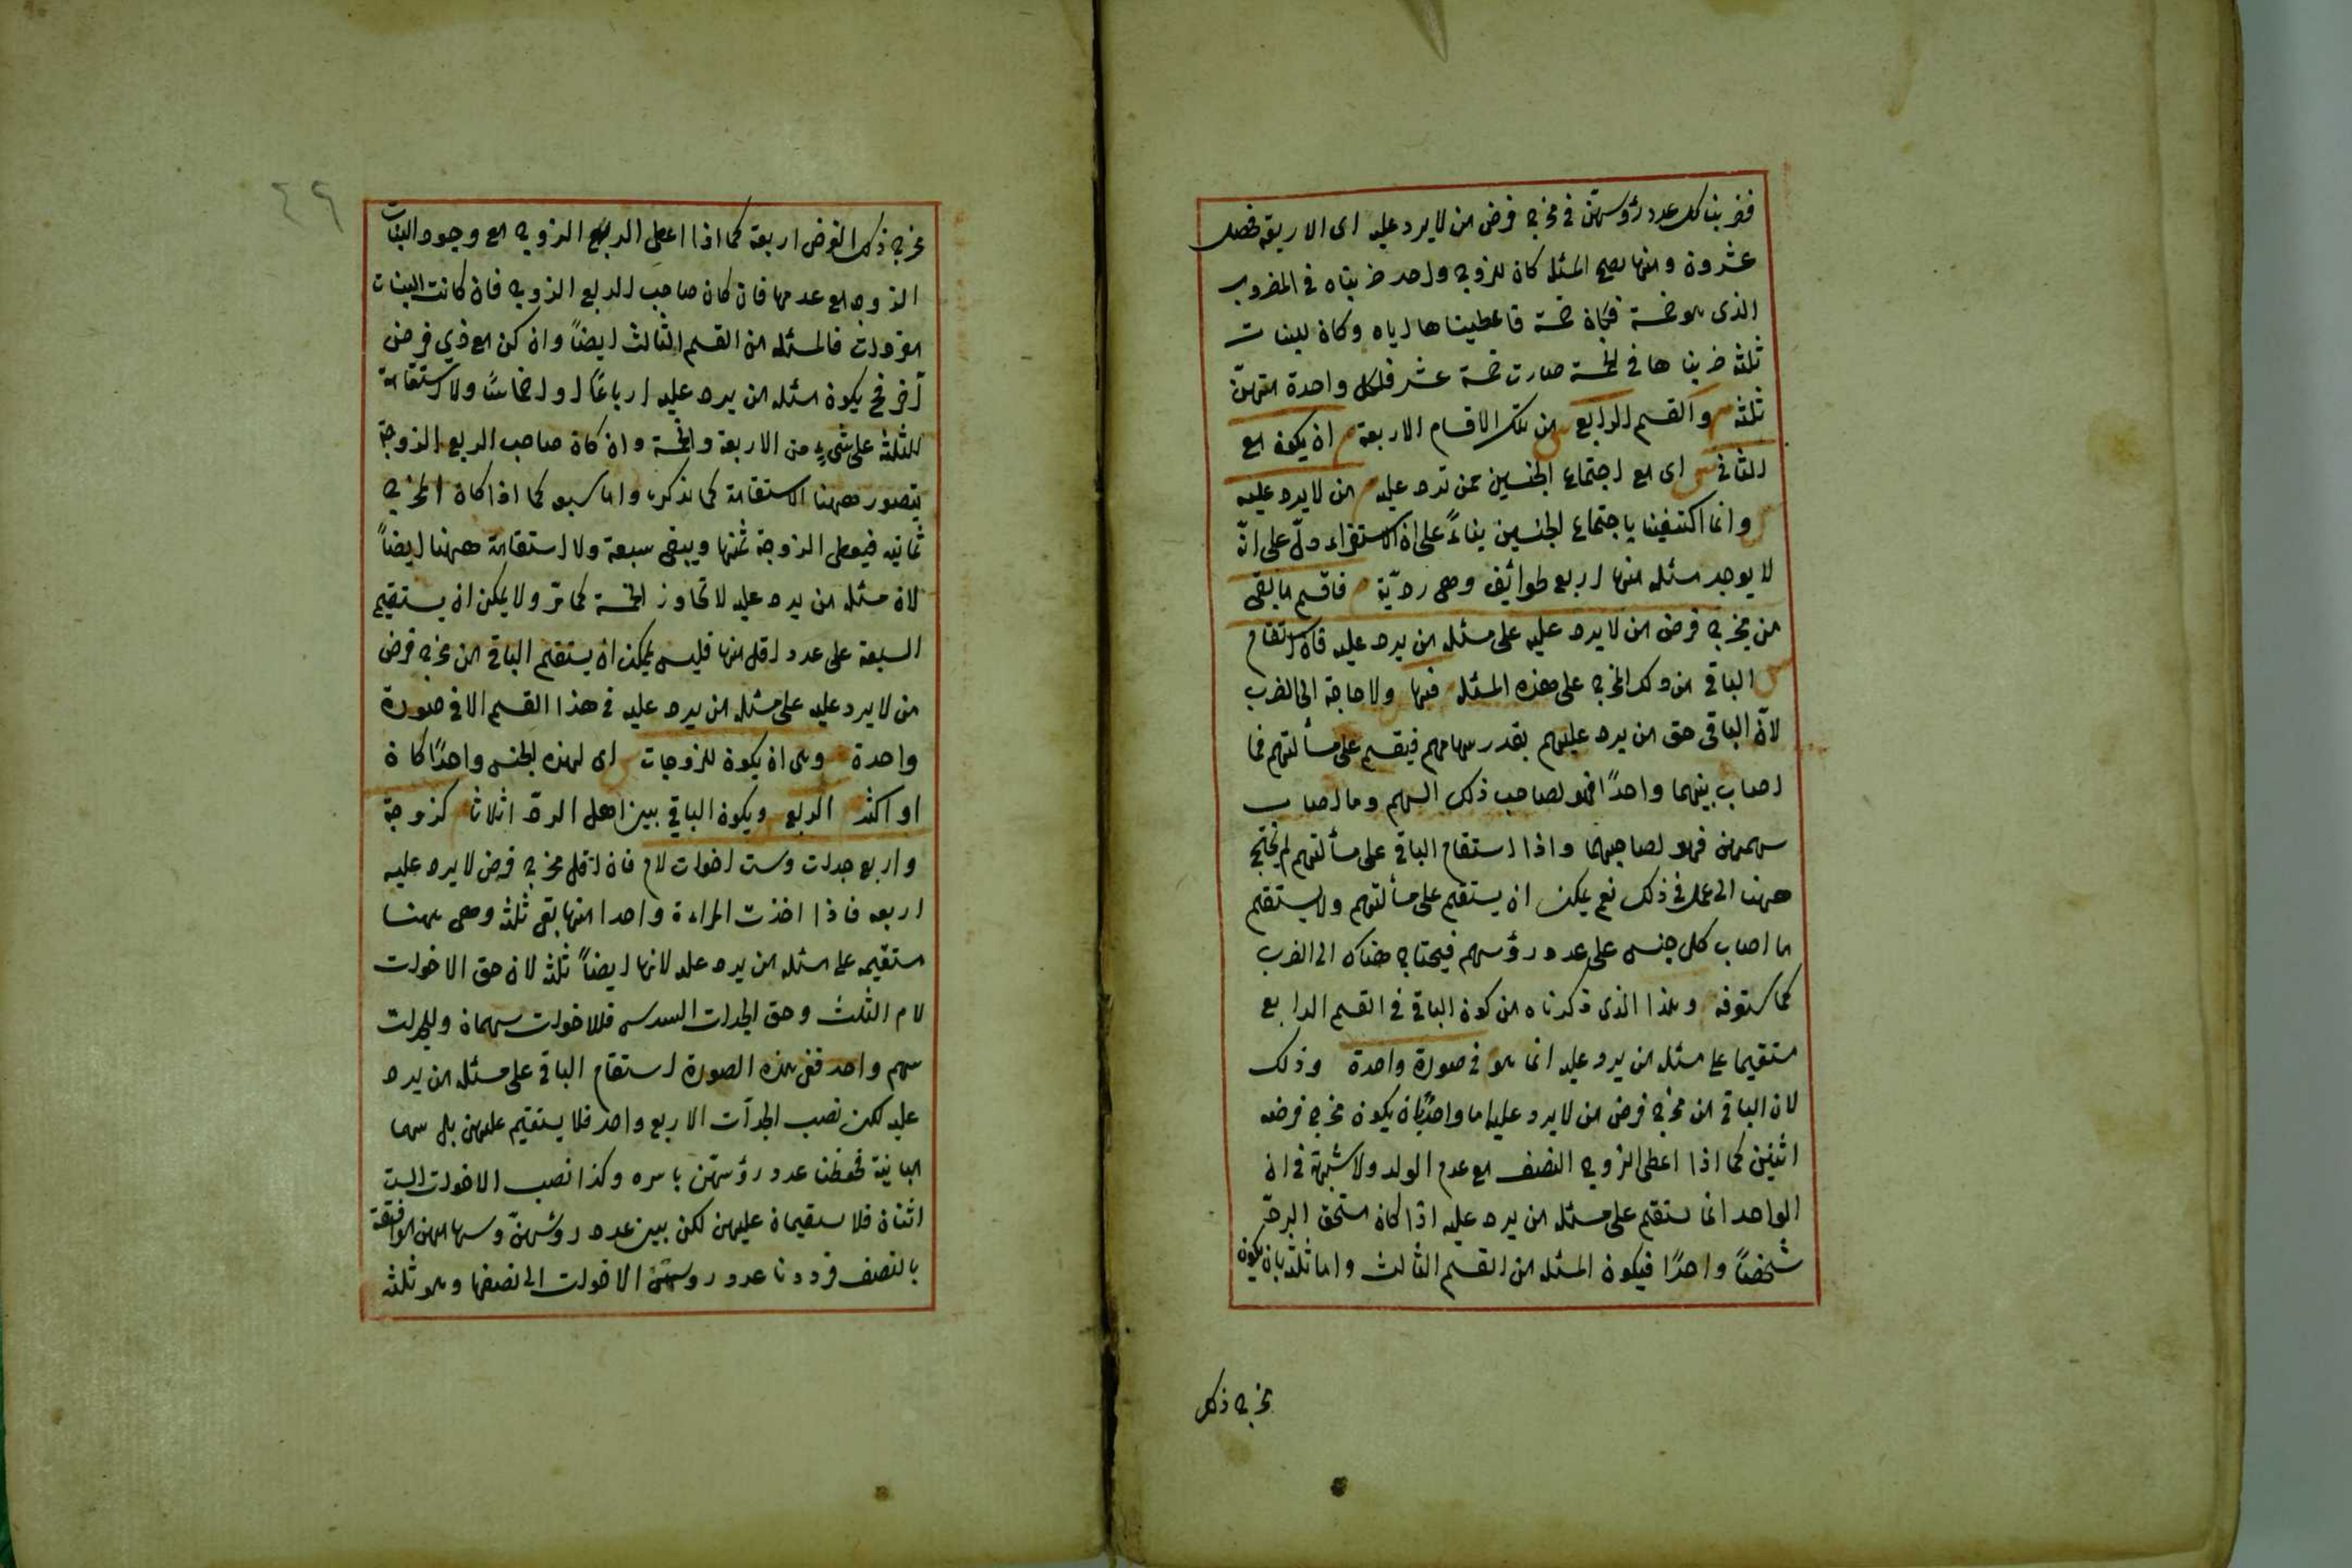 فضربنا كل عدد رؤسهن فى مخرج فرض من لا يرد عليه اى الاربعة فحصل
عشرون ومنها تصح المسئلة كان للزوج واحد ضربناه فى المضروب
الذى هو خمسة فكان خمسة فاعطيناها اياه وكان للبنات
ثلثة ضربناها فى الخمسة صارت خمسة عشر فلكل واحدة منهنّ
ثلثة م والقسم الرابع ش من تلك الاقسام الاربعة م ان يكون مع
الثانى ش اى مع اجتماع الجنسين ممن ترد عليه م من لا يرد عليه
ش وانما اكتفينا باجتماع الجنسين بناءً على ان الاستقراء دلّ على انّ
لا يوجد مسئلة منها اربع طوائف وهى ردّية م فاقسم ما بقى
من مخرج فرض من لا يرد عليه على مسئلة من يرد عليه فان استقام
ش الباقى من ذلك المخرج على هذه المسئلة فبها ولا حاجة الى الضرب
لانّ الباقى حق من يرد عليهم بقدر سهامهم فيقسم على مسألتهم فما
اصاب بينهما واحدًا فهو لصاحب ذلك السهم وما اصاب
سهمين فهو لصاحبهما واذا استقام الباقى على مسألتهم لم يحتج
ههنا الى عمل فى ذلك نعم يمكن ان يستقيم على مسألتهم ولا يستقيم
ما اصاب كل جنس على عدد رؤسهم فيحتاج هناك الى الضرب
كما ستعرفه وهذا الذى ذكرناه من كون الباقى فى القسم الرابع
مستقيما على مسئلة من يرد عليه انما هو فى صورة واحدة وذلك
لان الباقى من مخرج فرض من لا يرد عليه اما واحدًا بان يكون مخرج فرضه
اثنين كما اذا اعطى الزوج النصف مع عدم الولد ولا شبهة فى ان
الواحد انما يستقيم على مسئلة من يرد عليه اذا كان مستحق الردّ
شخصًا واحدًا فيكون المسئلة من القسم الثالث واما ثلثة بان يكون
مخرج ذلك
٤٩
مخرج ذلك الفرض اربعة كما اذا اعطى الربع الزوج مع وجود البنات
الزوجة مع عدمها فان كان صاحب الربع الزوج فان كانت البنات
منفردات فالمسئلة من القسم الثالث ايضاً وان كن مع ذى فرض
آخر فح يكون مسئلة من يرد عليه ارباعًا او اخماسًا ولا استقامة
للثلثة على شىءٍ من الاربعة والخمسة وان كان صاحب الربع الزوجة
يتصور ههنا الاستقامة كما نذكره واما سبعة كما اذا كان المخرج
ثمانية فيعطى الزوجة ثمنها ويبقى سبعة ولا استقامة ههنا ايضاً
لان مسئلة من يرد عليه لا تجاوز الخمسة كما مرّ ولا يمكن ان يستقيم
السبعة على عدد اقل منها فليس يمكن ان يستقيم الباقى من مخرج فرض
من لا يرد عليه على مسئلة من يرد عليه فى هذا القسم الا فى صورة
واحدة م وهى ان يكون للزوجات ش اى لهذه الجنس واحدًا كان
او اكثر م الربع ويكون الباقى بين اهل الردّ اثلاثا كزوجة
واربع جدات وست اخوات لام فان اقل مخرج فرض لا يرد عليه
اربعه فاذا اخذت المراءة واحدا منها بقى ثلثة وهى ههنا
مستقيمه على مسئلة من يرد عليه لانها ايضاً ثلثة لان حق الاخوات
لام الثلث وحق الجدات السدس فللاخوات سهمان وللجدات
سهم واحد ففى هذه الصورة استقام الباقى على مسئلة من يرد
عليه لكن نصب الجدّات الاربع واحد فلا يستقيم عليهن بل بينهما
مباينة فحفظنا عدد رؤسهن باسره وكذا نصب الاخوات الست
اثنان فلا يستقيمان عليهن لكن بين عدد رؤسهنّ وسهامهن موافقة
بالنصف فرددنا عدد رؤسهن الاخوات الى نصفها وهو ثلثه